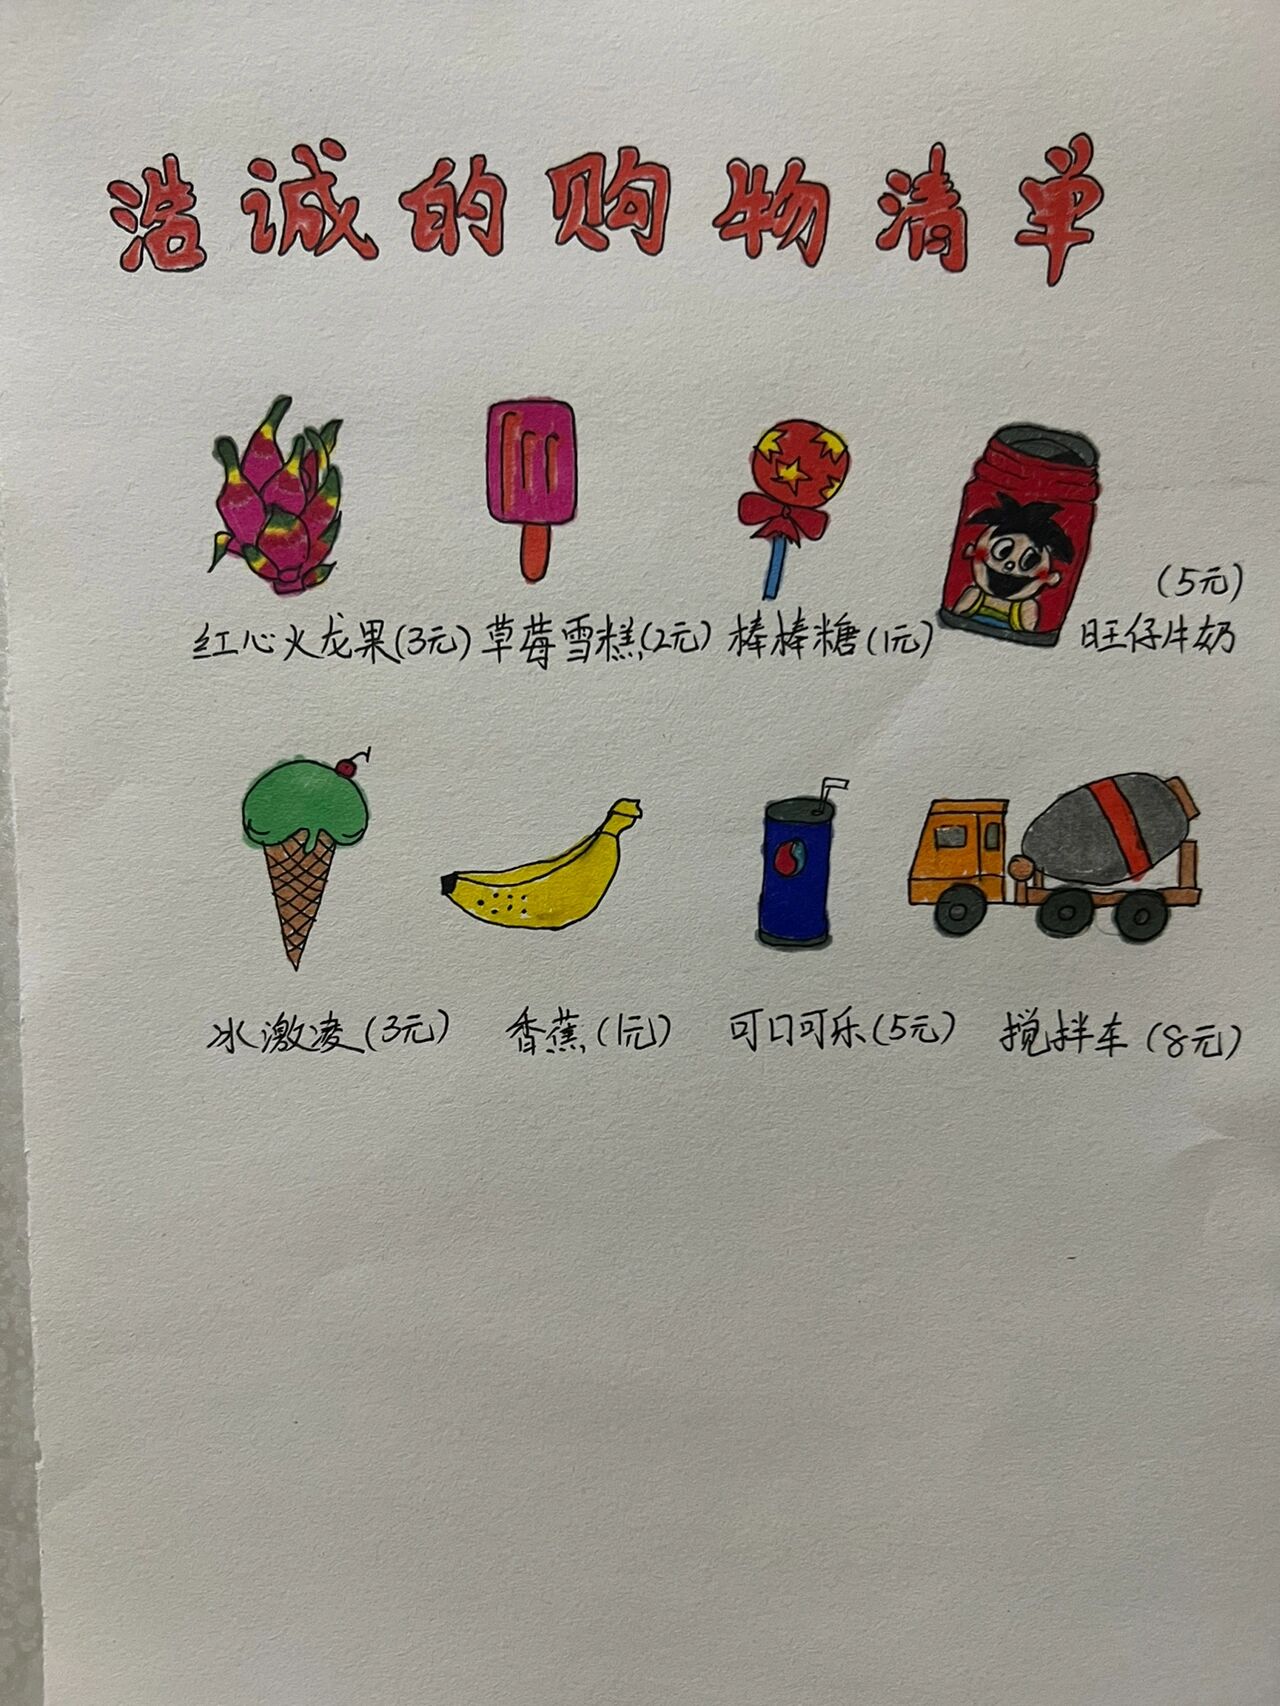 浩诚的购物清单
(5元)
红心火龙果(3元) 草莓雪糕(2元) 棒棒糖(1元) 旺仔牛奶
冰激凌(3元) 香蕉(1元) 可口可乐(5元) 搅拌车(8元)